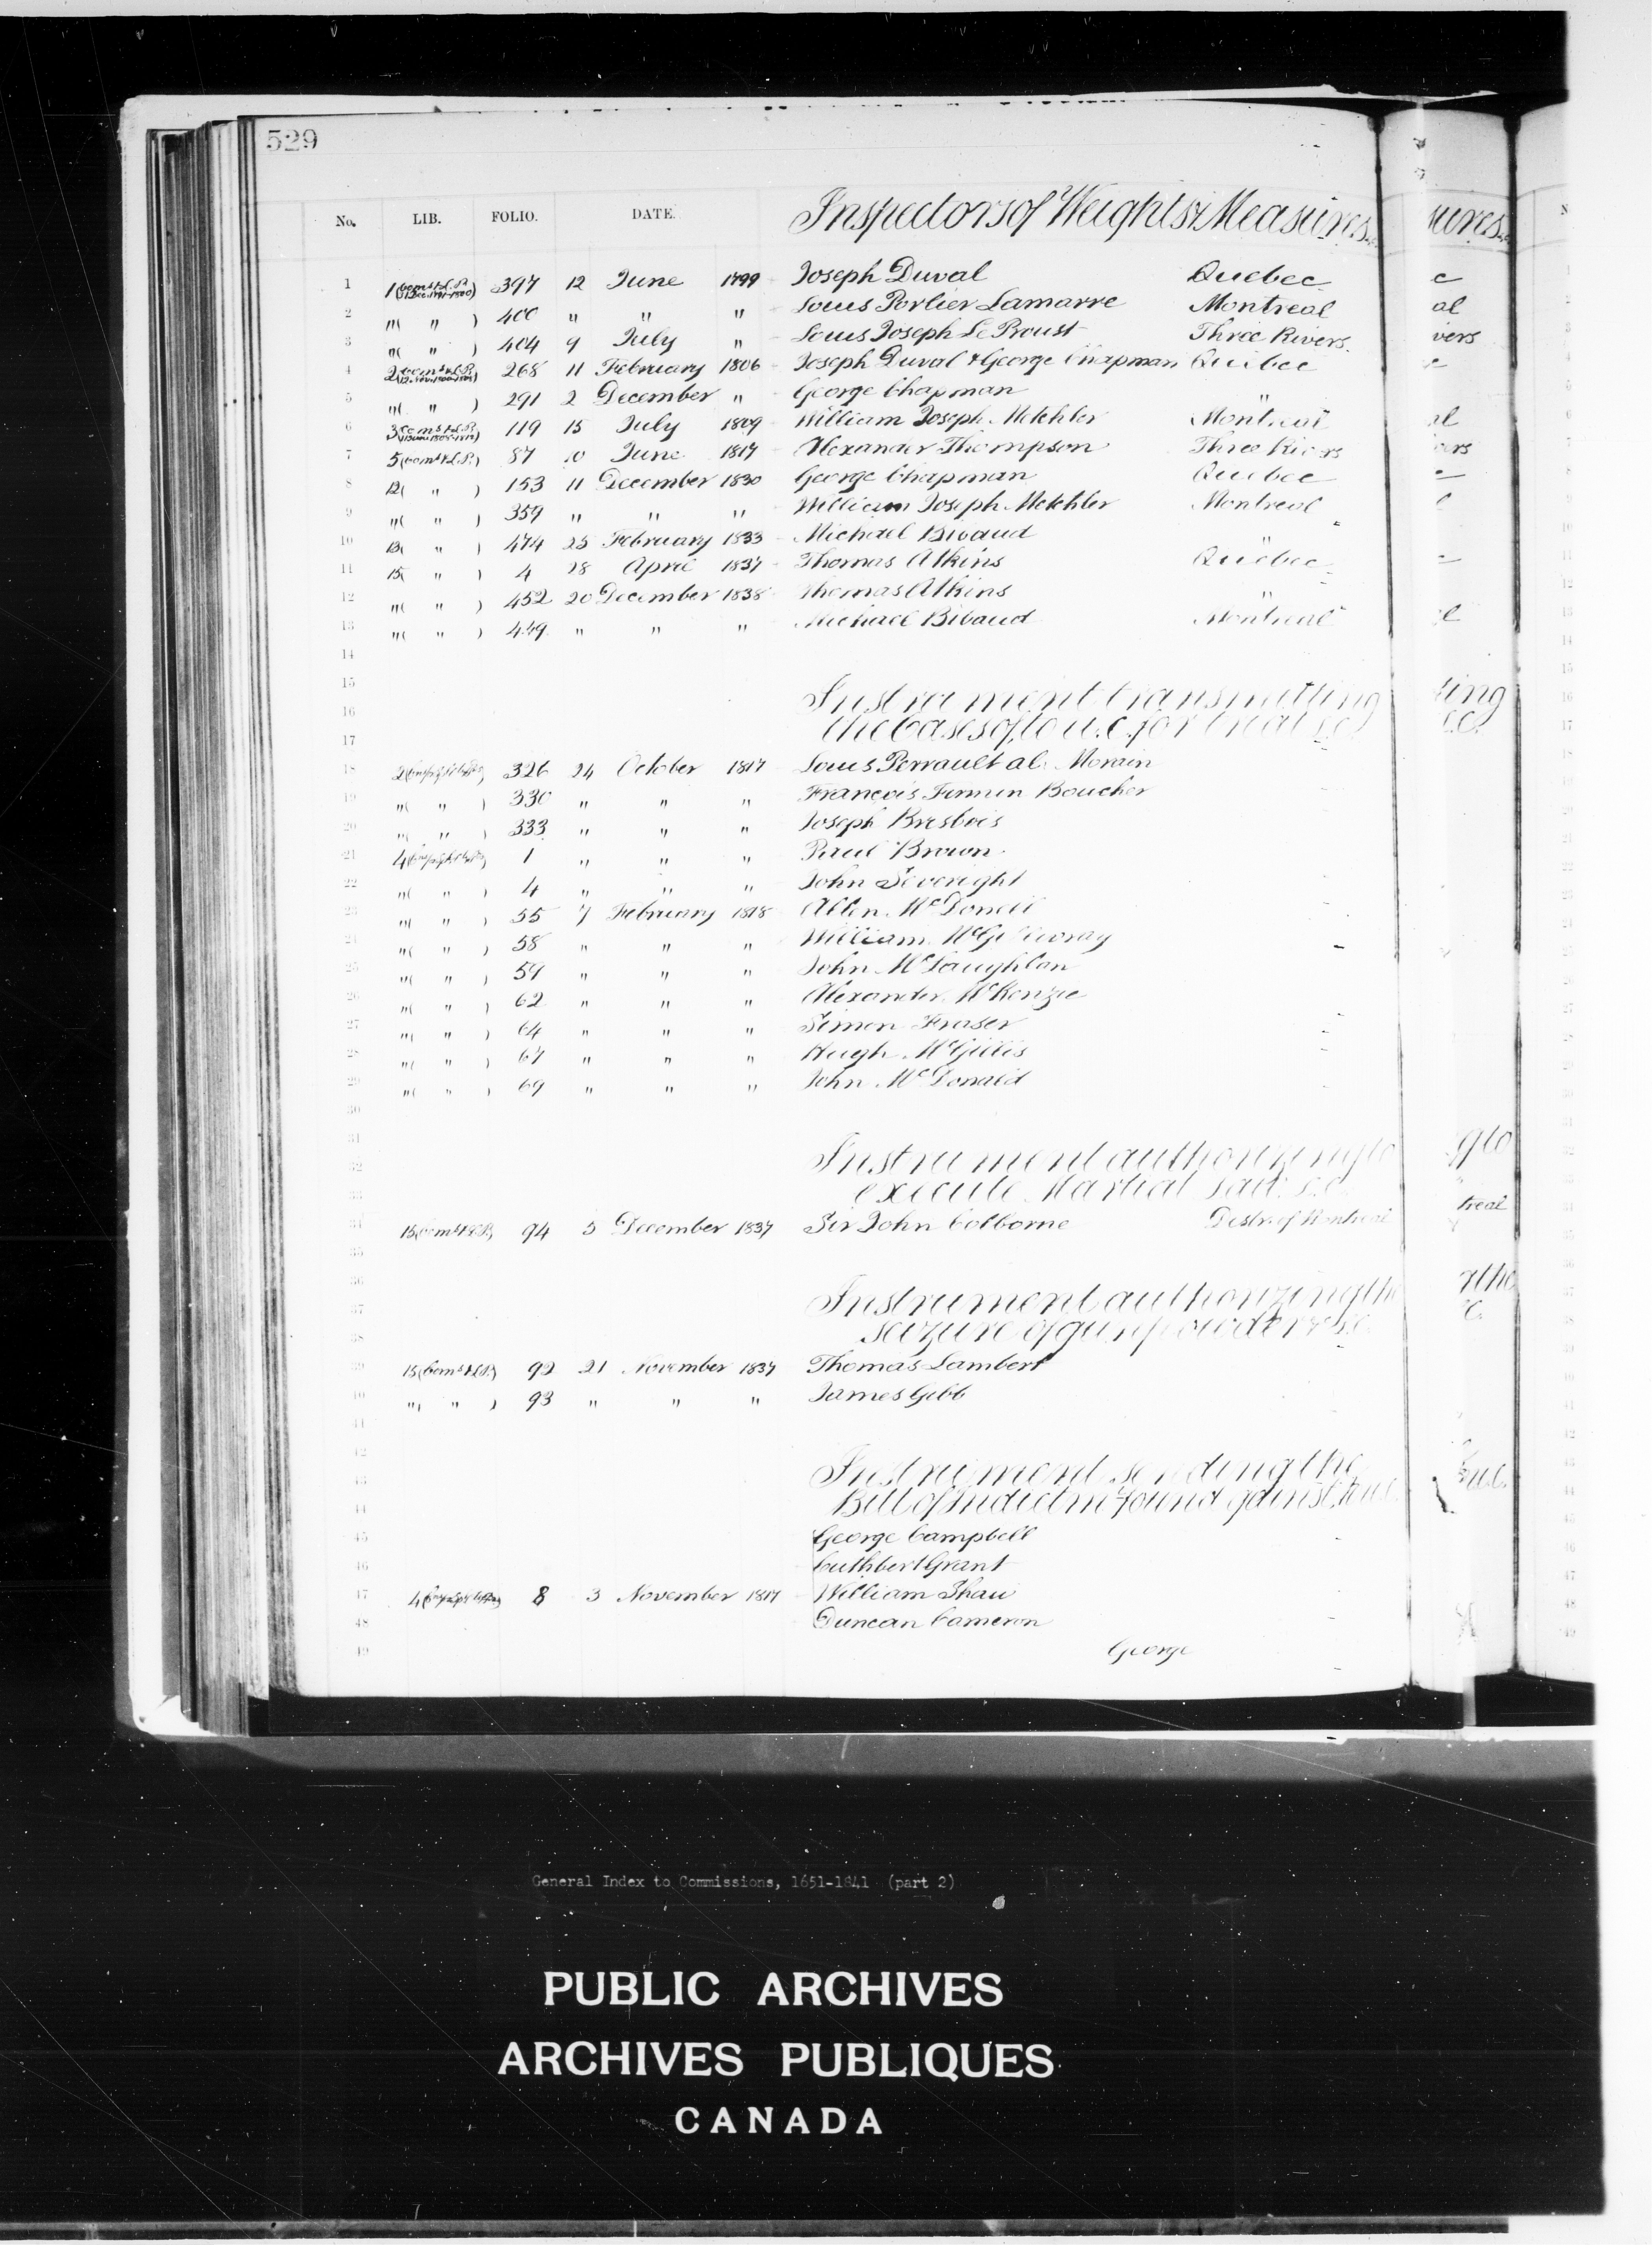 529
No. LIB. FOLIO. DATE. Inspectors of Weights & Measures.
1 1 (Comns & L.P. 397 12 June 1799 Joseph Duval Quebec
2 " ( " ) 400 " " " Louis Portier Lamarre Montreal
3 " ( " ) 404 9 July " Louis Joseph Le Proust Three Rivers.
4 2 (Comns & L.P. 268 11 February 1806 Joseph Duval & George Chapman Quebec
5 " ( " ) 291 2 December " George Chapman "
6 3 Comns & L.P. 119 15 July 1809 William Joseph Melchler Montreal
7 5 (Comns & L.P.) 87 10 June 1817 Alexander Thompson Three Rivers
8 12 ( " ) 153 11 December 1830 George Chapman Quebec
9 " ( " ) 359 " " " William Joseph Melchler Montreal
10 13 ( " ) 474 25 February 1833 Michael Bibaud "
11 15 ( " ) 4 28 April 1837 Thomas Atkins Quebec
12 " ( " ) 452 20 December 1838 Thomas Atkins "
13 " ( " ) 449 " " " Michael Bibaud Montreal
14
15
16 Instrument transmitting
17 the Cases of to U.C. for trial &c.
18 2 326 24 October 1817 Louis Perrault al. Morain
19 " ( " ) 330 " " " François Firmin Boucher
20 " ( " ) 333 " " " Joseph Brisbois
21 4 1 " " " Paul Brown
22 " ( " ) 4 " " " John Severight
23 " ( " ) 55 7 February 1818 Allen McDonell
24 " ( " ) 58 " " " William McGillivray
25 " ( " ) 59 " " " John McLaughlan
26 " ( " ) 62 " " " Alexander McKenzie
27 " ( " ) 64 " " " Simon Fraser
28 " ( " ) 67 " " " Hugh McGillis
29 " ( " ) 69 " " " John McDonald
30
31
32 Instrument authorizing to
33 execute Martial Law &c.
34 15 (Comns & L.P.) 94 5 December 1837 Sir John Colborne Distr. of Montreal
35
36
37 Instrument authorizing the
38 seizure of gunpowder &c.
39 15 (Comns & L.P.) 92 21 November 1837 Thomas Lambert
40 " ( " ) 93 " " " James Gibb
41
42
43 Instrument sending the
44 Bill of Indictmt found against to U.C.
45 George Campbell
46 Cuthbert Grant
47 4 8 3 November 1817 William Shaw
48 Duncan Cameron
49 George
General Index to Commissions, 1651-1841 (part 2)
PUBLIC ARCHIVES
ARCHIVES PUBLIQUES
CANADA